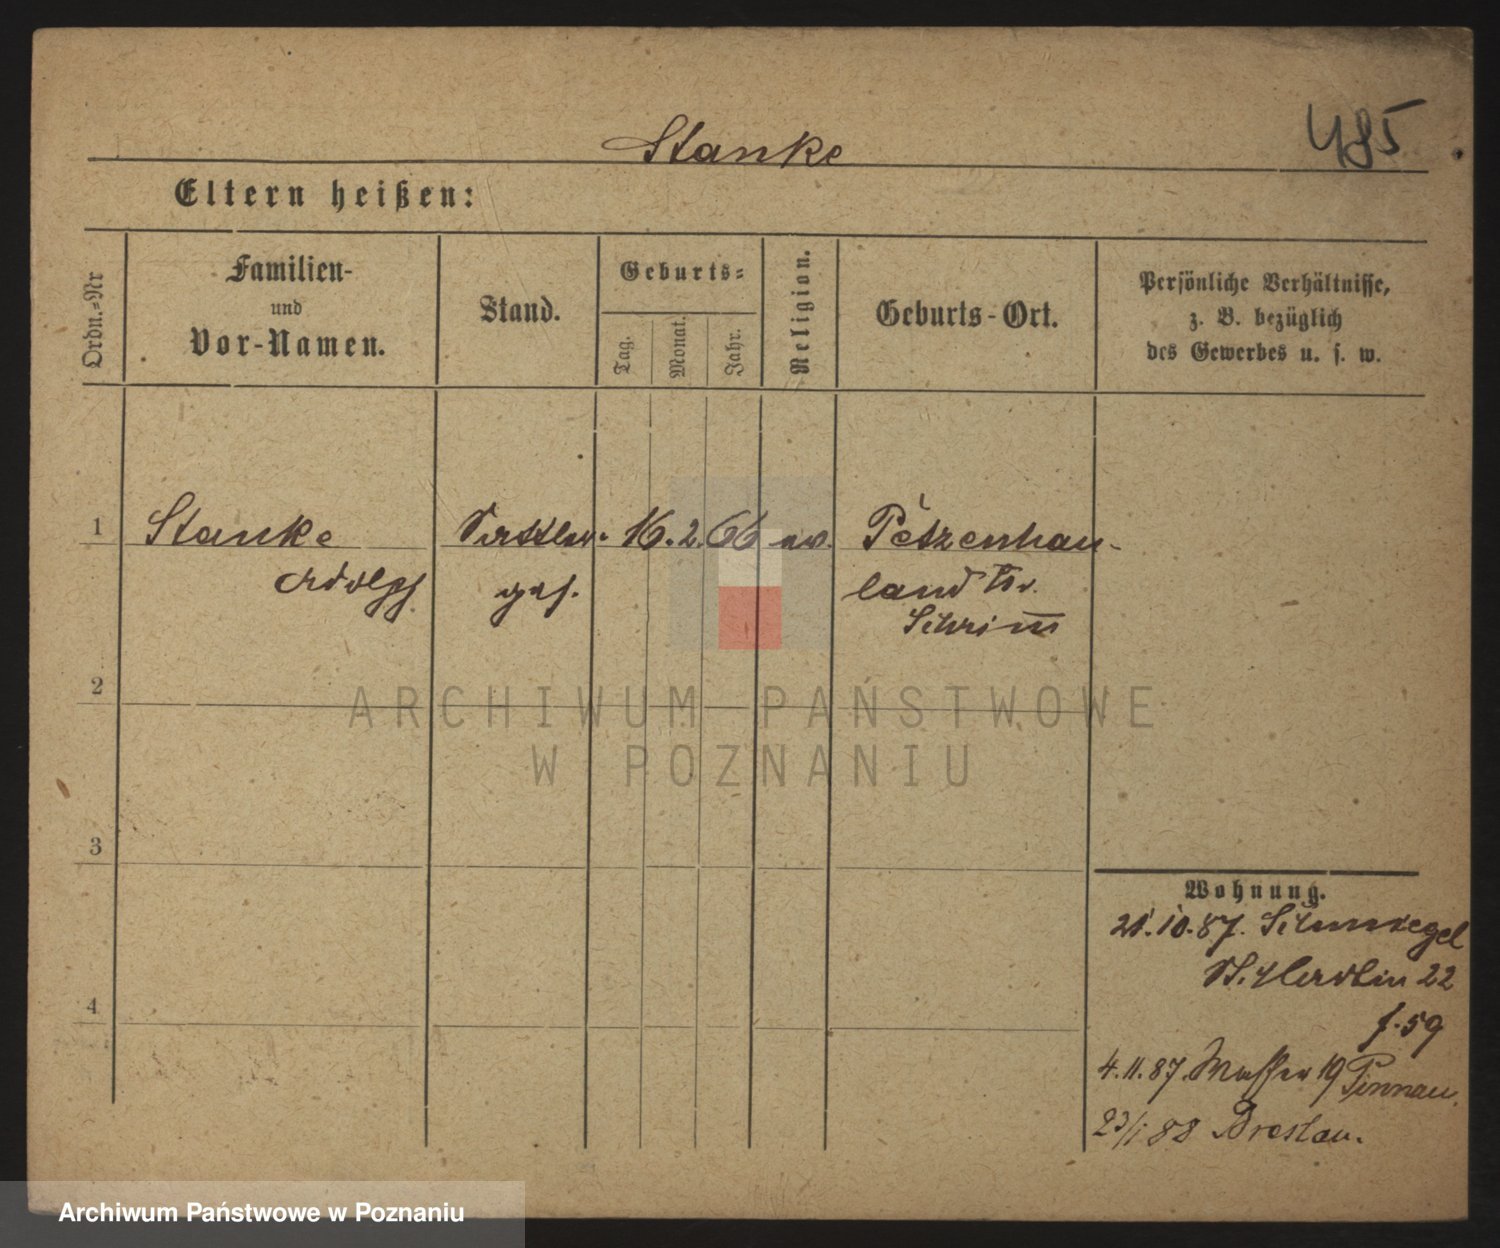 Stanke
485
Eltern heißen:
Ordn.-Nr
Familien-
und
Vor-Namen.
Stand.
Geburts-
Tag.
Monat.
Jahr.
Religion.
Geburts-Ort.
Persönliche Verhältnisse,
z. B. bezüglich
des Gewerbes u. s. w.
1 Stanke Sattler- 16. 2. 66 ev. Petzenhau-
Adolph ges. land Kr.
Schrimm
2
ARCHIWUM PAŃSTWOWE
W POZNANIU
3
Wohnung.
21.10.87.
St. Adalbin 22
f. 59
4
4.11.87. Wasser 19 Pinnau.
23/1 88 Breslau.
Archiwum Państwowe w Poznaniu